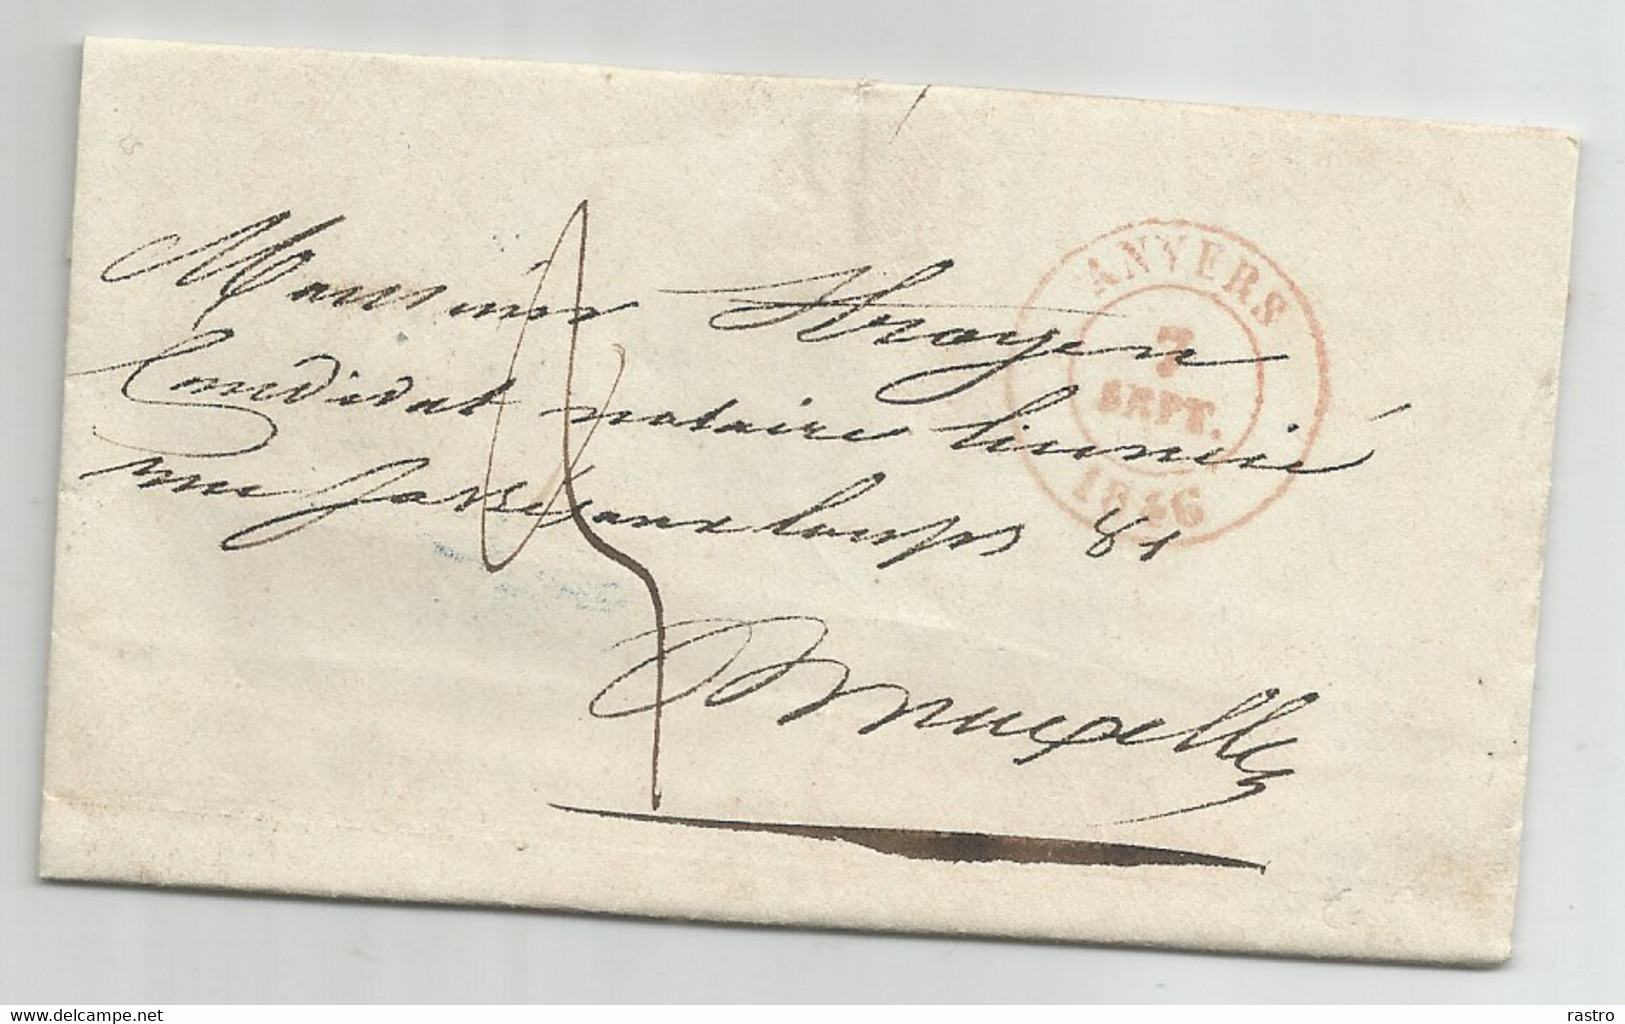 Monsieur Kroyen
Candidat notaire licencié
rue fossé aux loups 81
Bruxelles
ANVERS
7
SEPT.
1846
www.delcampe.net
rastro